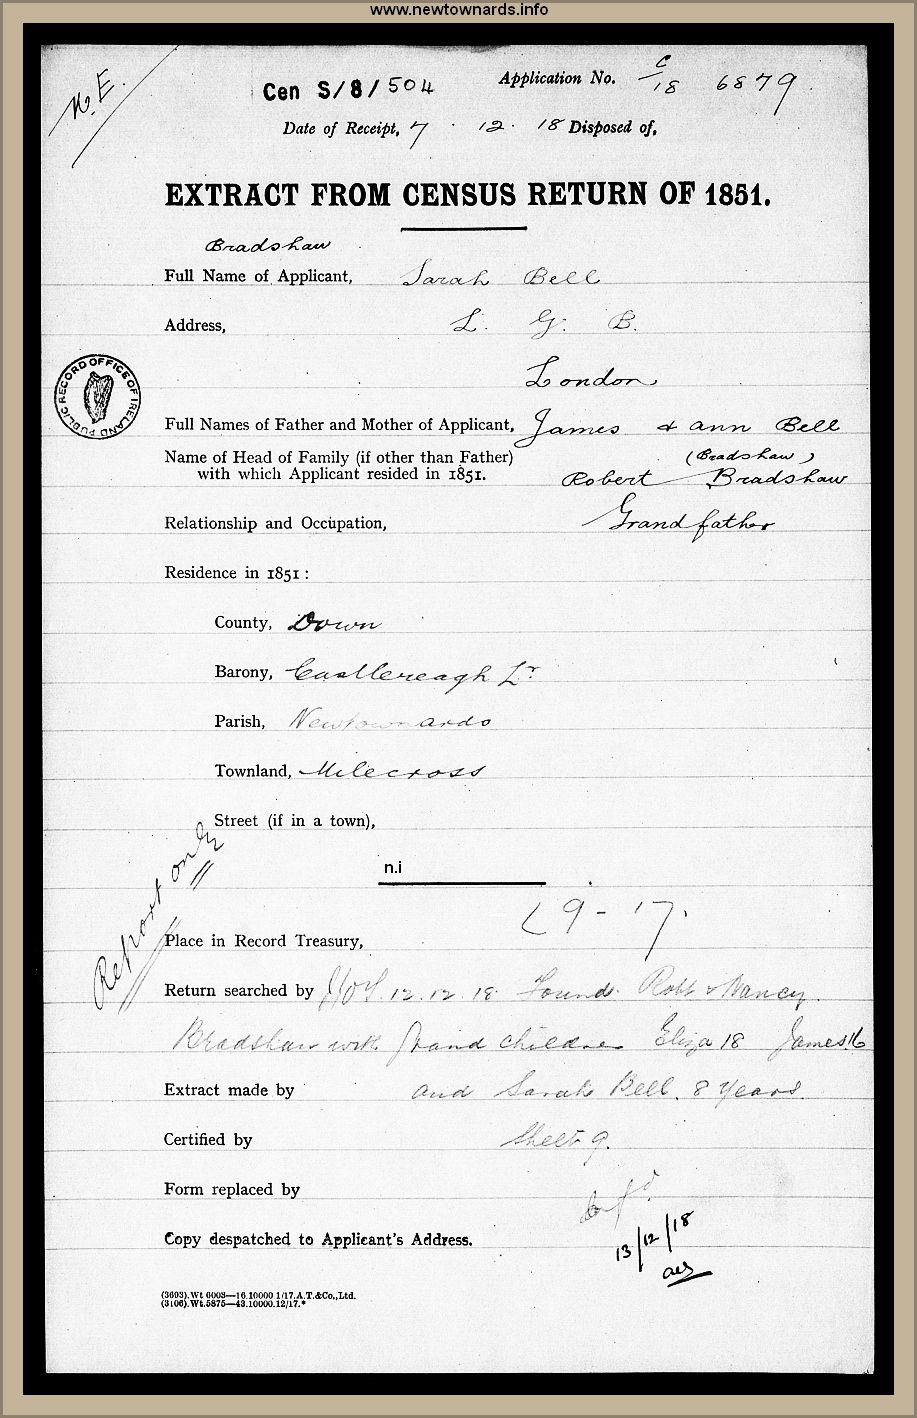 www.newtownards.info
Cen S/8/504
Application No. C/18 6879
Date of Receipt, 7 . 12 . 18 Disposed of,
EXTRACT FROM CENSUS RETURN OF 1851.
Bradshaw
Full Name of Applicant, Sarah Bell
Address, L. G. B.
London
PUBLIC RECORD OFFICE OF IRELAND
Full Names of Father and Mother of Applicant, James & Ann Bell
Name of Head of Family (if other than Father) (Bradshaw)
with which Applicant resided in 1851. Robert Bradshaw
Relationship and Occupation, Grandfather
Residence in 1851 :
County, Down
Barony, Castlereagh Lr
Parish, Newtownards
Townland, Milecross
Street (if in a town),
Report only
n.i
Place in Record Treasury, 9 - 17.
Return searched by 12.12.18 Found Robt & Nancy
Bradshaw with Grand children Eliza 18 James 16
Extract made by and Sarah Bell. 8 Years.
Certified by Sheet 9.
Form replaced by
13/12/18
Copy despatched to Applicant's Address.
(3693).Wt 6003—16.10000 1/17.A.T.&Co.,Ltd.
(3106).Wt.5875—43.10000.12/17.*